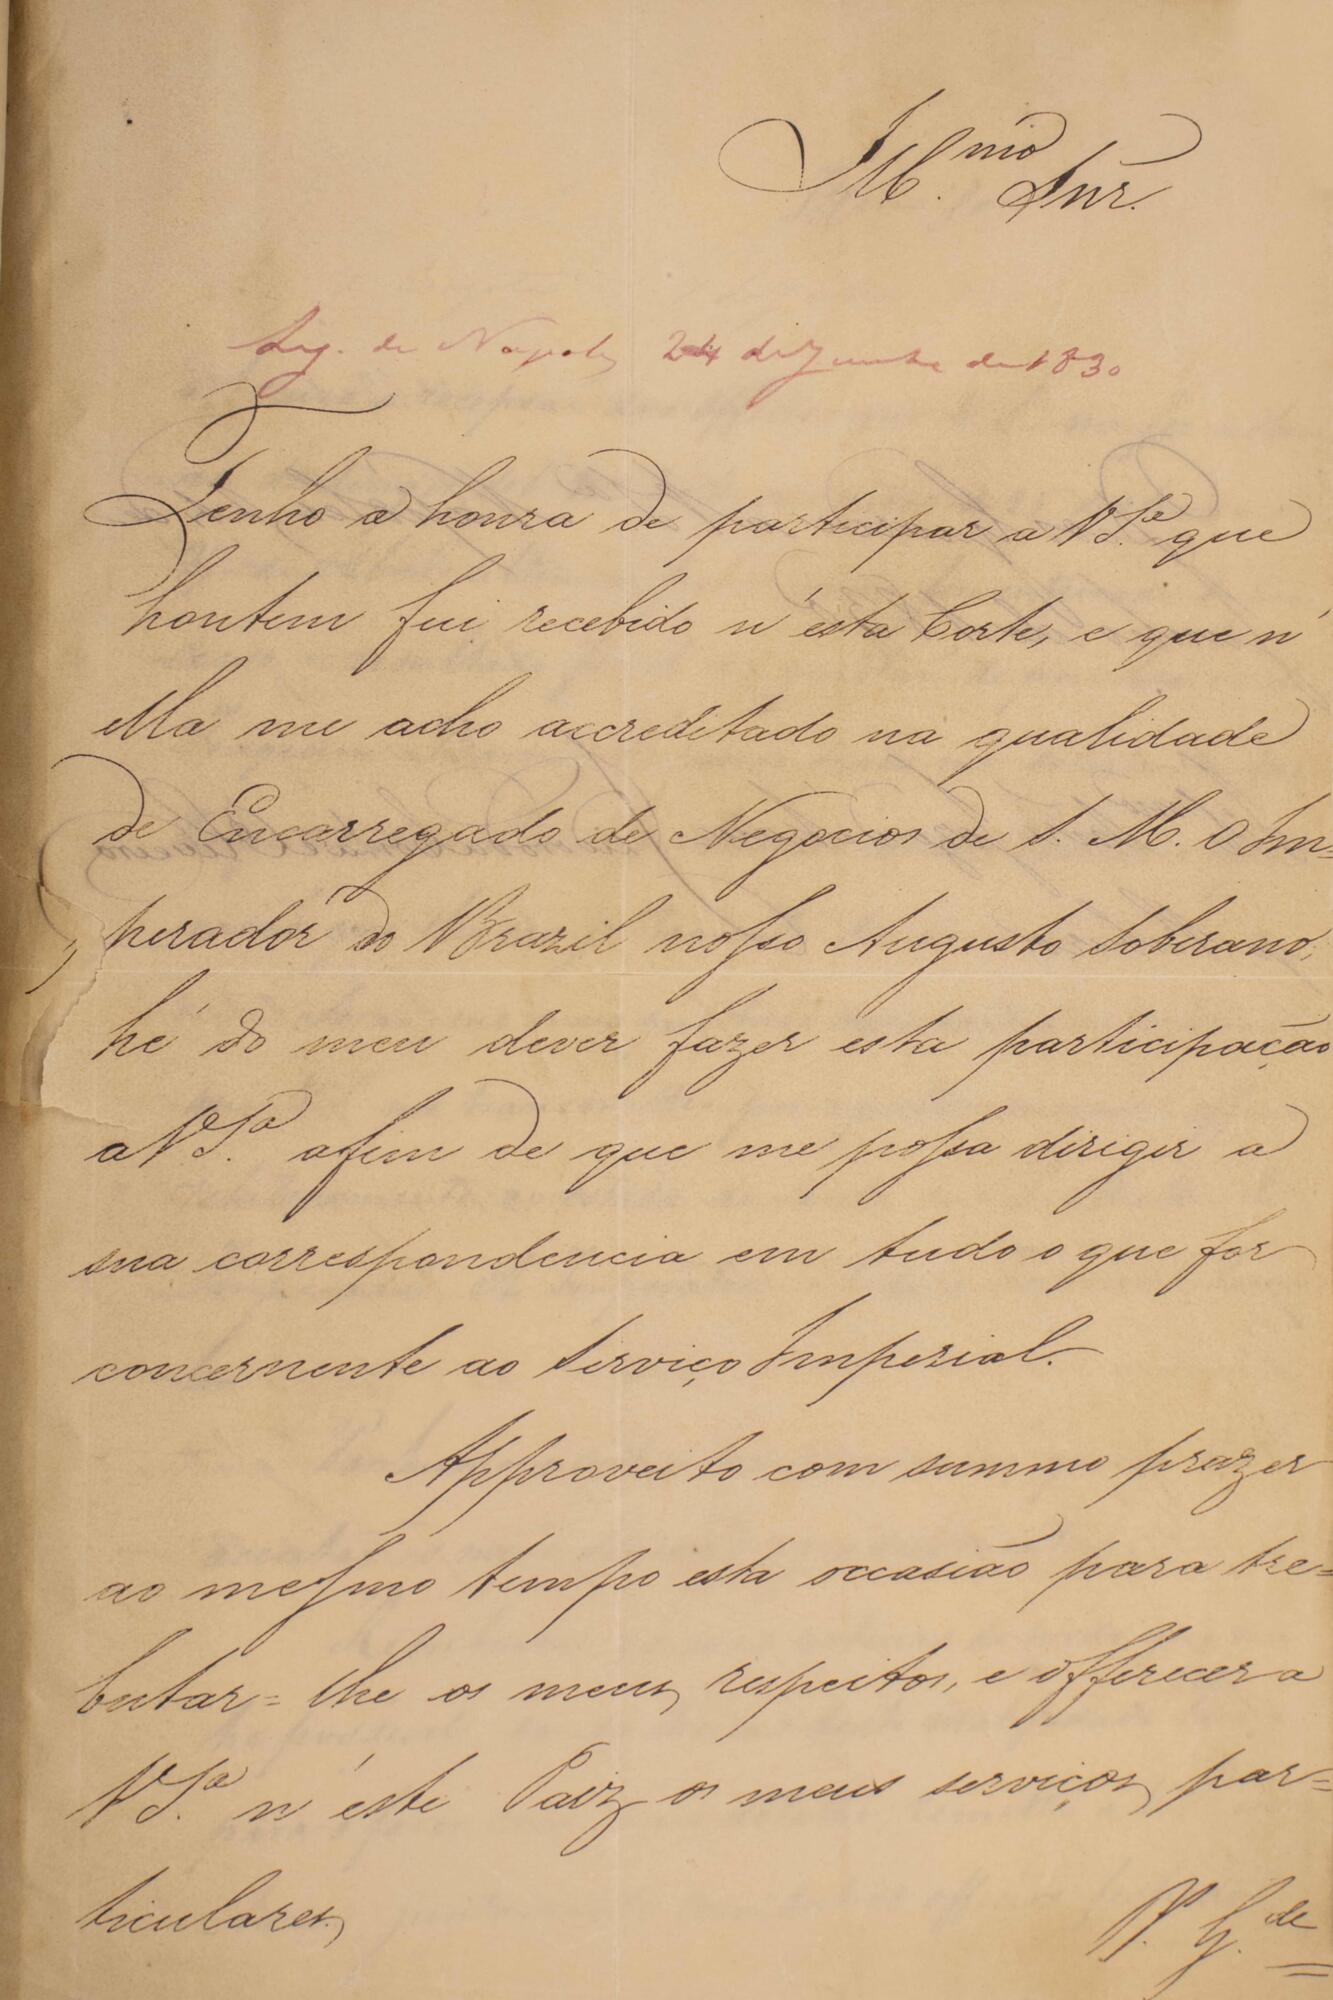 Ill.mo Snr.
Leg. de Napoles 24 de Junho de 1830
Tenho a honra de participar a V S.a que
hontem fui recebido n'ésta Corte, e que n'
ella me acho accreditado na qualidade
de Encarregado de Negocios de S. M. O Im=
perador do Brazil nosso Augusto Soberano;
hé do meu dever fazer esta participação
a V S.a afim de que me possa dirigir a
sua correspondencia em tudo o que for
concernente ao Serviço Imperial.
Approveito com summo prazer
ao mesmo tempo esta occasião para tre=
butar=lhe os meus respeitos, e offerecer a
V S.a n'éste Paiz os meus serviços par=
ticulares.
D. G.de